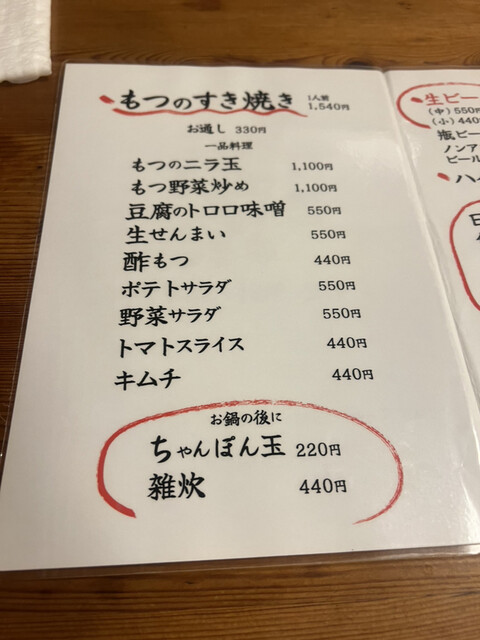 もつのすき焼き 1人前 1,540円
お通し 330円
一品料理
もつのニラ玉 1,100円
もつ野菜炒め 1,100円
豆腐のトロロ味噌 550円
生せんまい 550円
酢もつ 440円
ポテトサラダ 550円
野菜サラダ 550円
トマトスライス 440円
キムチ 440円
お鍋の後に
ちゃんぽん玉 220円
雑炊 440円
生ビー
(中) 550円
(小) 440
瓶ビー
ノンア
ビール
ハイ